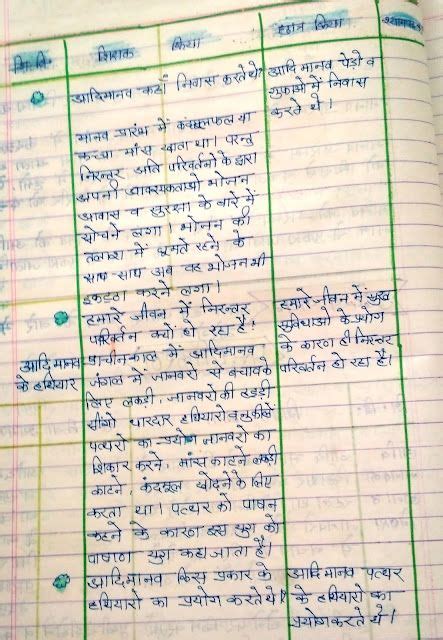 शि. बि. शिक्षक क्रिया छात्र क्रिया श्यामपट्ट
आदिमानव कहाँ निवास करते थे?
आदि मानव पेड़ो व
गुफाओ में निवास
करते थे।
मानव प्रारंभ में कंदमूलफल या
कच्चा मांस खाता था। परन्तु
निरन्तर अति परिवर्तनो के द्वारा
अपनी आवश्यकताओ भोजन
आवास व सुरक्षा के बारे में
सोचने लगा। भोजन की
तलाश में घूमते रहने के
साथ-साथ अब वह भोजन भी
इकट्ठा करने लगा।
हमारे जीवन में निरन्तर
परिवर्तन क्यों हो रहा है?
हमारे जीवन में सुख
सुविधाओ के प्रयोग
के कारण ही निरन्तर
परिवर्तन हो रहा है।
आदि मानव
के हथियार
प्राचीनकाल में आदिमानव
जंगल में जानवरो से बचाव के
लिए लकड़ी, जानवरो की हड्डी
सींगो धारदार हथियारो व नुकीले
पत्थरो का प्रयोग जानवरो का
शिकार करने, मांस काटने लकड़ी
काटने, कंदमूल खोदने के लिए
करता था। पत्थर को पाषान
कहने के कारण इस युग को
पाषाण युग कहा जाता है।
आदिमानव किस प्रकार के
हथियारो का प्रयोग करते थे?
आदि मानव पत्थर
के हथियारो का
प्रयोग करते थे।